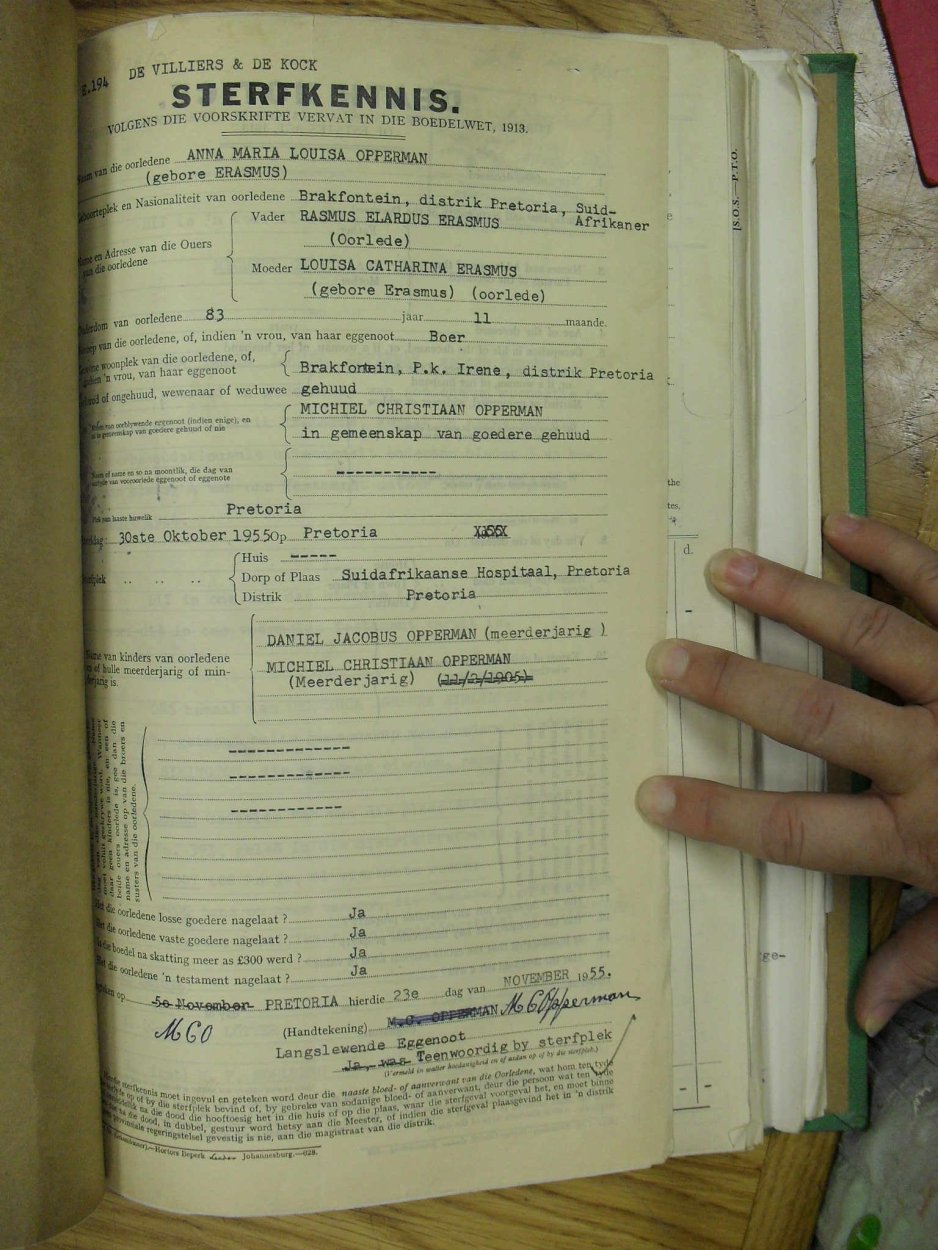 E.194 DE VILLIERS & DE KOCK
STERFKENNIS.
VOLGENS DIE VOORSKRIFTE VERVAT IN DIE BOEDELWET, 1913.
van die oorledene ANNA MARIA LOUISA OPPERMAN
(gebore ERASMUS)
en Nasionaliteit van oorledene Brakfontein, distrik Pretoria, Suid-
Afrikaner
Vader RASMUS ELARDUS ERASMUS
(Oorlede)
en Adresse van die Ouers
van die oorledene
Moeder LOUISA CATHARINA ERASMUS
(gebore Erasmus) (oorlede)
van oorledene 83 jaar 11 maande.
van die oorledene, of, indien 'n vrou, van haar eggenoot Boer
woonplek van die oorledene, of,
'n vrou, van haar eggenoot
Brakfontein, P.k. Irene, distrik Pretoria
of ongehuud, wewenaar of weduwee gehuud
van oorblywende eggenoot (indien enige), en
gemeenskap van goedere gehuud of nie
MICHIEL CHRISTIAAN OPPERMAN
in gemeenskap van goedere gehuud
of name en so na moontlik, die dag van
van vooroorlede eggenoot of eggenote
-----------
laaste huwelik Pretoria
30ste Oktober 1955 Op Pretoria
Huis -----
Dorp of Plaas Suidafrikaanse Hospitaal, Pretoria
Distrik Pretoria
DANIEL JACOBUS OPPERMAN (meerderjarig )
van kinders van oorledene
of hulle meerderjarig of min-
is.
MICHIEL CHRISTIAAN OPPERMAN
(Meerderjarig) (11/2/1905)
-------------
-------------
------------
daar geen kinders is nie, en een of
beide ouers oorlede is, gee dan die
name en adresse op van die broers en
susters van die oorledene.
die oorledene losse goedere nagelaat ? Ja
die oorledene vaste goedere nagelaat ? Ja
die boedel na skatting meer as £300 werd ? Ja
die oorledene 'n testament nagelaat ? Ja
op 5e November PRETORIA hierdie 23e dag van NOVEMBER 1955.
MCO
(Handtekening) M.C. OPPERMAN M C Opperman
Langslewende Eggenoot
Ja, was Teenwoordig by sterfplek
(Vermeld in watter hoedanigheid en of aldan op of by die sterfplek.)
sterfkennis moet ingevul en geteken word deur die naaste bloed- of aanverwant van die Oorledene, wat hom ten tyde
of by die sterfplek bevind of, by gebreke van sodanige bloed- of aanverwant, deur die persoon wat ten tyde
na die dood die hooftoesig het in die huis of op die plaas, waar die sterfgeval voorgeval het, en moet binne
na die dood, in dubbel, gestuur word hetsy aan die Meester, of indien die sterfgeval plaasgevind het in 'n distrik
provinsiale regeringstelsel gevestig is nie, aan die magistraat van die distrik.
Hortors Beperk Johannesburg.—028.
[S.O.S.—P.T.O.
the
tes,
d.
ge-